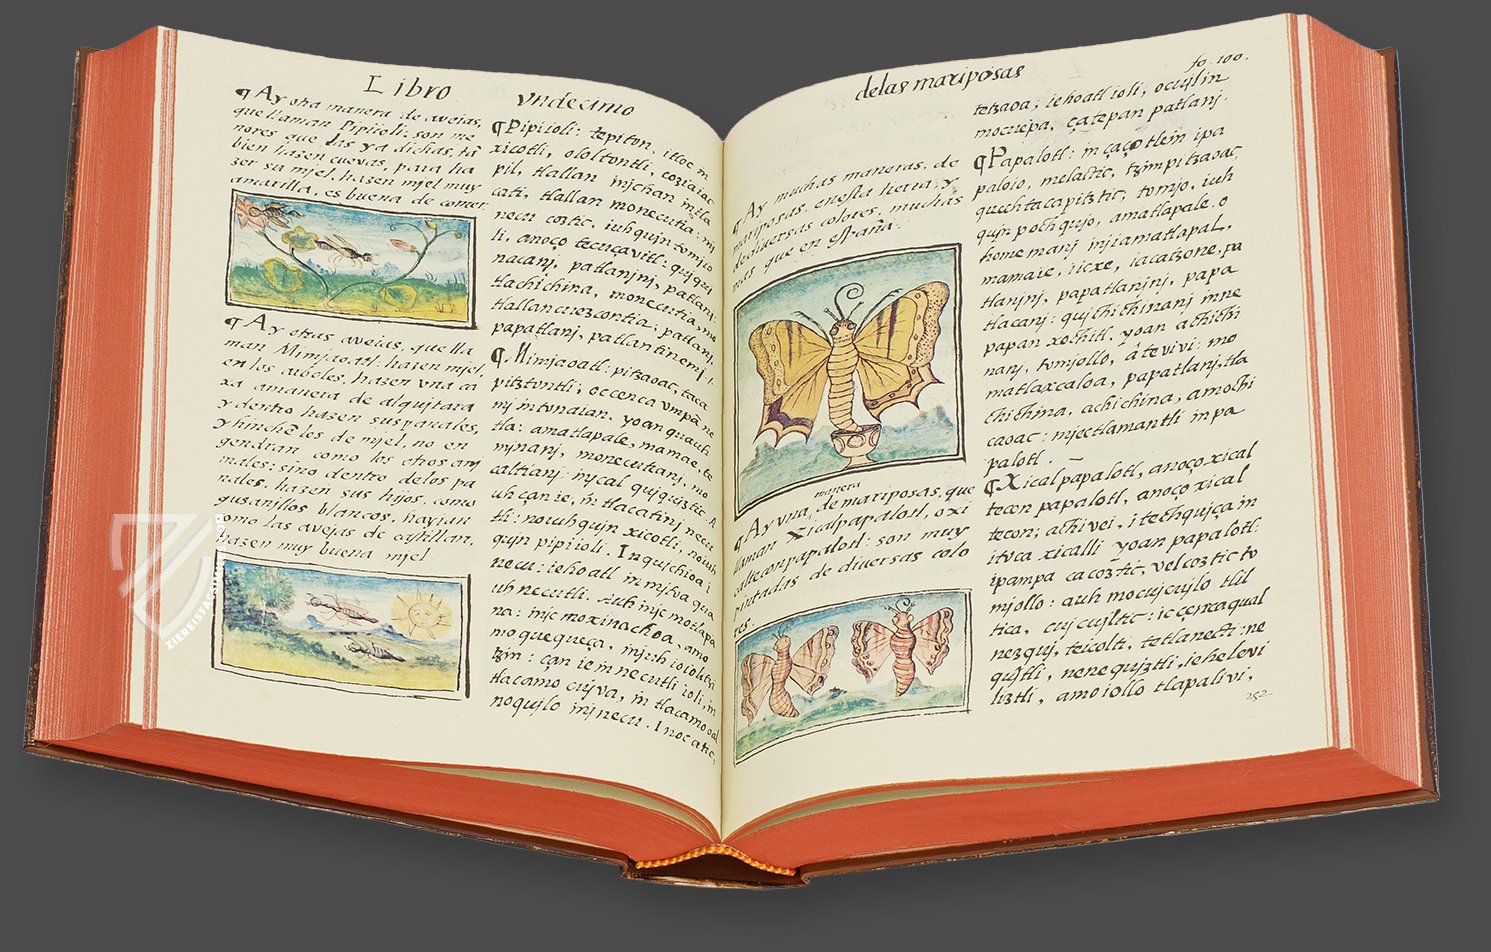 Libro
vndecimo
¶ Ay otra manera de avejas,
que llaman Pipiioli: son me
nores que las ya dichas, tā
bien hazen cuevas, para ha
zer su mjel, hazen mjel muy
amarilla, es buena de comer.
¶ Ay otras avejas, que lla
man Mimjaoatl, hazen mjel
en los arboles, hazen vna ca
xa amanera de alquitara
y dentro hazen sus panales,
y hinchē les de mjel, no en
gendran como los otros anj
males: sino dentro de los pa
nales, hazen sus hijos, como
gusanillos blancos, hazian
como las avejas de castillan,
hazen muy buena mjel
¶ Pipiioli: tepiton, itloc m
xicotli, ololtontli, coziaiac
pil, tlallan mjchan mjla
cati, tlallan monecutia: nj
necu coztic, iuhqujn tomjio
li, anoço tecucavitl: qujqui
nacanj, patlanjnj, patlanj:
tlachichina, monecutia, me
tlallancuezcontia: patlanj,
papatlanj, patlantinemj.
¶ Mimjaoatl: pitzaoac, tzaca
pitztontli, occenca vmpā ne
nj intonaian, yoan quauh
tla: amatlapale, mamae, te
mjnanj, monecutianj, mo
caltianj: mjcal qujqujztic
uhcan ie, in tlacatinj necu
tli: no iuhqujn xicotli, no iuh
qujn pipiioli. In qujchioa i
necu: iehoatl in mjtoa qua
uh necutli. Auh mjc motlapa
na: mjc moxinachoa, amo
moquequeça, mjuh ioiolitvi
tzin: can ie in necutli ioli, in
tlacamo cujva, in tlacamo oal
noqujlo injnecu. Inocatic,
delas mariposas
fo. 100.
¶ Ay muchas maneras, de
mariposas, enesta tierra, y
de diuersas colores, muchas
mas que en españa.
manera
¶ Ay vna, de mariposas, que
llaman Xicalpapalotl, o xi
caltecon papalotl: son muy
pintadas de diuersas colo
res.
tetzaoa, iehoatl ioli, ocujlin
mocuepa, çatepan patlanj.
¶ Papalotl: in çaçotlein ipa
paloio, melactic, tzimpitzaoac,
quechtacapitztic, tomjo, iuh
qujn pochqujo, amatlapale, o
home manj injiamatlapal,
mamaie, icxe, iacatzone, pa
tlanjnj, papatlanjnj, papa
tlacanj: qujchichinanj in ne
papan xochitl, yoan achichi
nanj, tomjollo, âtevivi: mo
matlaxcaloa, papatlanj, tla
chichina, achichina, amochi
caoac: mjectlamantli in pa
palotl.
¶ Xicalpapalotl, anoço xical
tecon papalotl, anoço xical
tecon; achi vei, itechqujça in
itoca xicalli yoan papalotl:
ipampa ca coztic, vel coztic to
mjollo: auh mocujcujlo tlil
tica, cujcujltic: ic cenca qual
nezquj, teicolti, tetlanecti: ne
qujtli, nenequjztli, ielelevi
liztli, amoiollo tlapalivi,
252.
ZIEREISFACSIMILES.COM